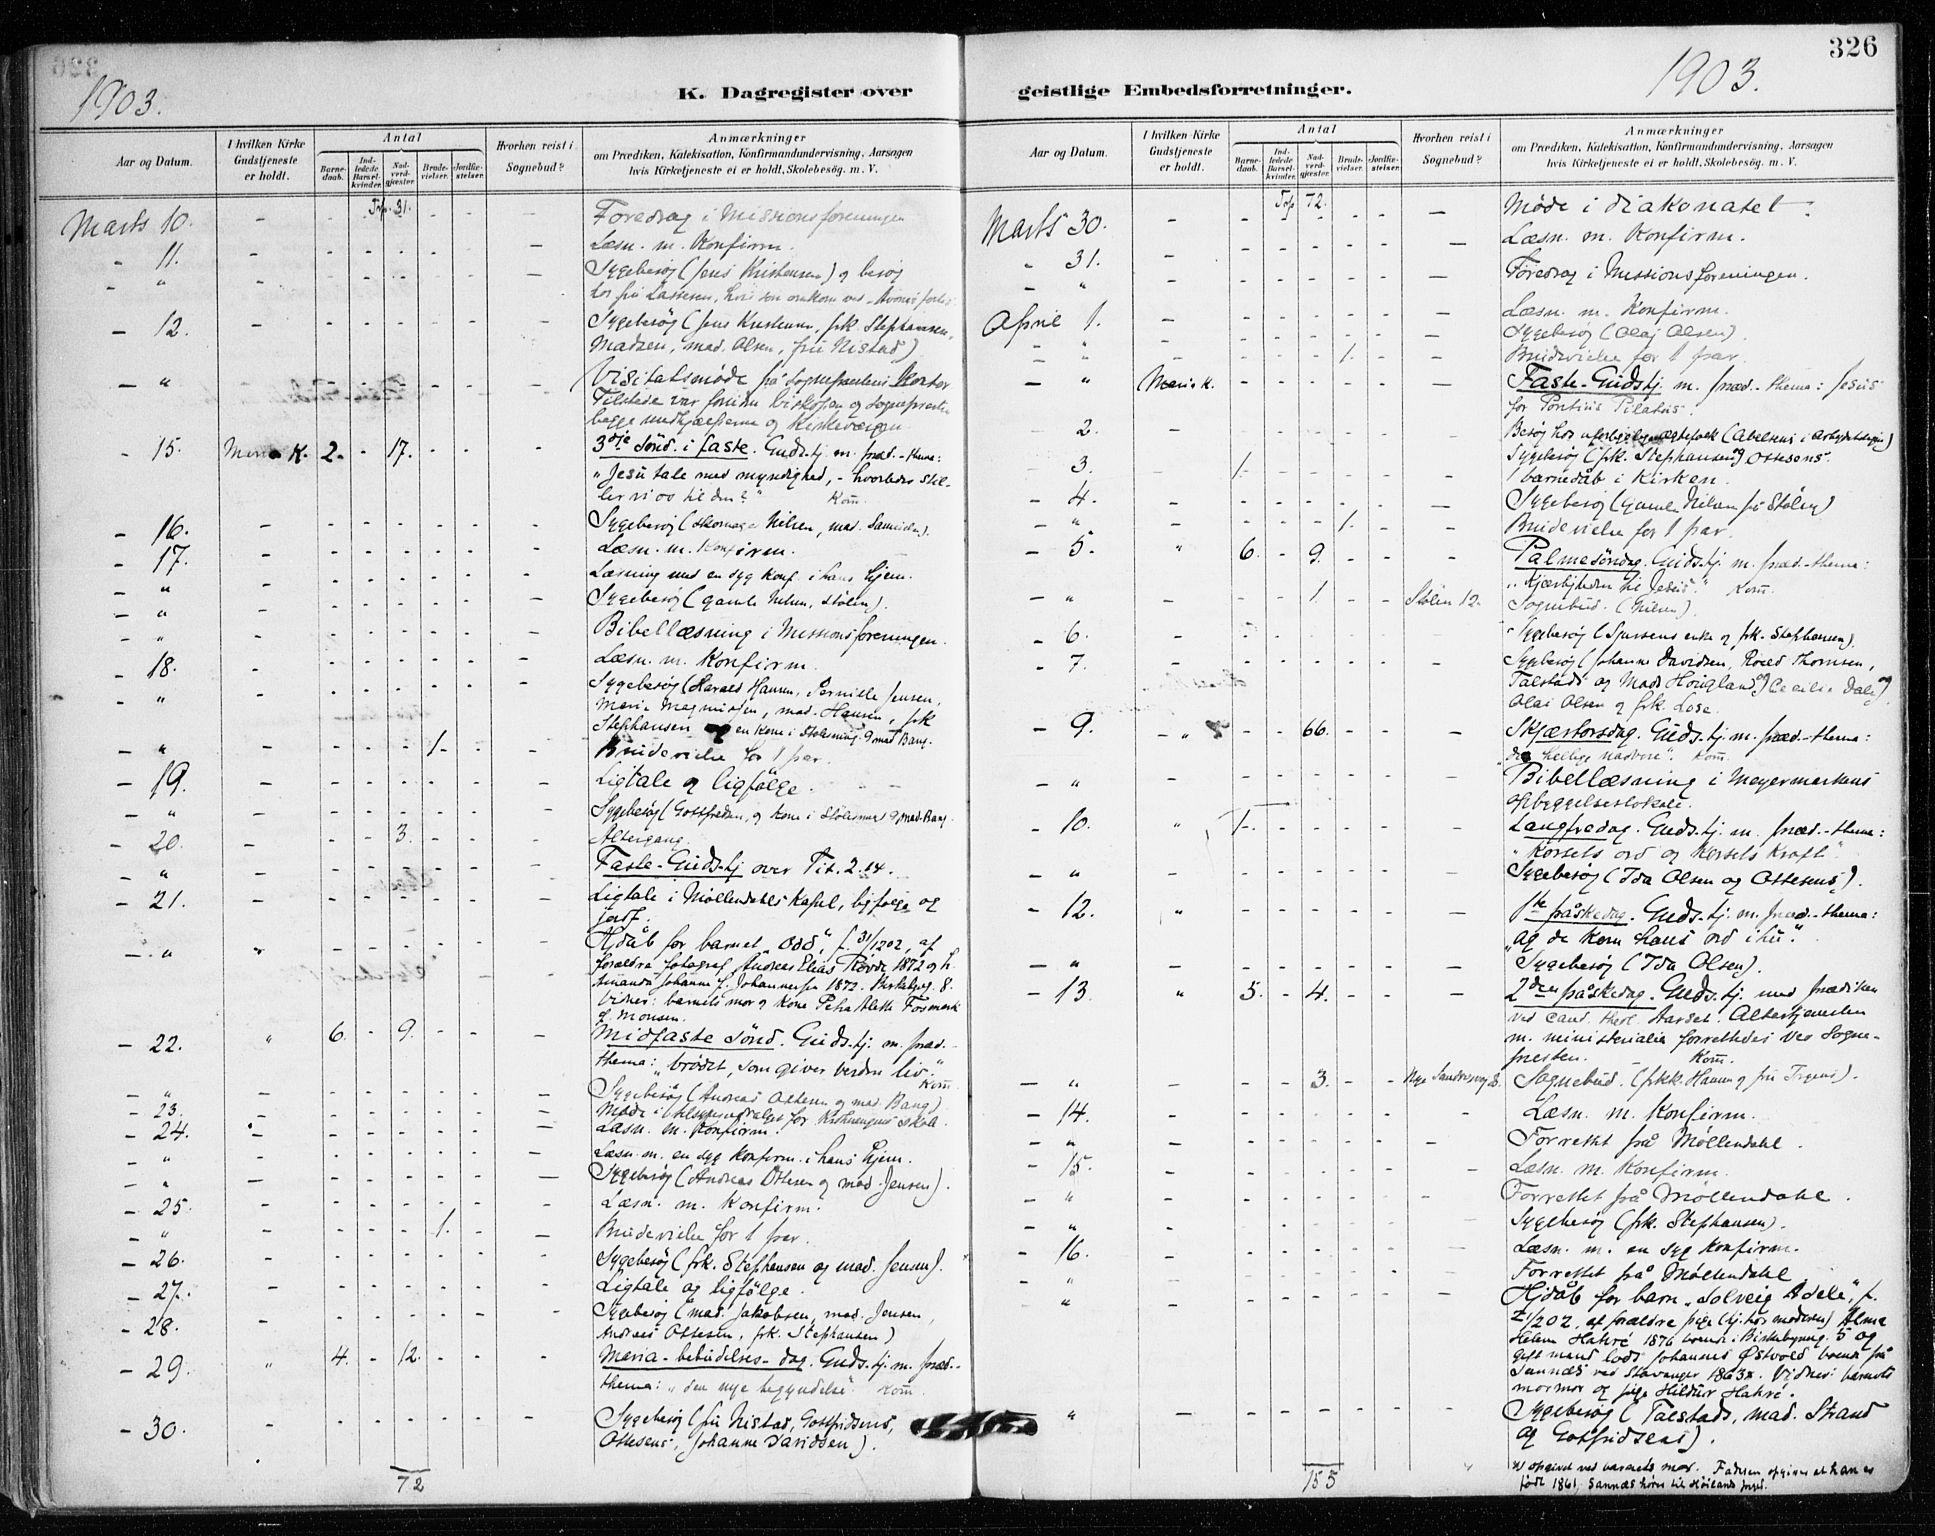 326
1903.
K. Dagregister over
Aar og Datum.
I hvilken Kirke Gudstjeneste er holdt.
Antal
Barne-daab.
Ind-ledede Barsel-kvinder.
Nad-verd-gjæster.
Brude-vielser.
Jordfæ-stelser.
Hvorhen reist i Sognebud?
Anmærkninger
om Prædiken, Katekisation, Konfirmandundervisning, Aarsagen
hvis Kirketjeneste ei er holdt, Skolebesög. m. V.
Trp. 31.
Marts 10. Foredrag i Missionsforeningen
- 11. Læsn. m. Konfirm.
- " Sygebesøg (Jens Kristensen) og besøg
hos fru Lassesen, hvis søn omkom ved
- 12. Sygebesøg (Jens Kristensen, frk Stephansen,
Madsen, mad. Olsen, fru Nistad)
- " Visitatsmøde på sognepræstens Kontor
Tilstede var foruden biskopen og sognepræsten
begge medhjælperne og Kirkeværgen
- 15. Maria K. 2. - 17. 3die Sönd. i faste. Guds.tj. m. præd. - thema:
"Jesu tale med myndighed, - hvorledes stil-
ler vi os til den?" Kom.
- 16. Sygebesøg (skomager Nilsen, mad. Samuelsen).
- 17. Læsn. m. Konfirm.
- " Læsning med en syg konf. i hans hjem.
- " Sygebesøg (gamle Nilsen, Stølen).
- " Bibellæsning i Missionsforeningen.
- 18. Læsn. m. Konfirm.
- " Sygebesøg (Harald Hansen, Pernille Jensen,
Marie Magnussen, mad. Hansen, frk
Stephansen og en Kone i Stølesmug. og mad Bang.
- " 1. Brudevielse for 1 par.
- 19. Ligtale og ligfølge.
- " Sygebesøg (Gottfredsen, og Kone i Stølesmug og mad. Bang.
- 20. 3. Altergang.
- " Faste-Guds.tj. over Tit. 2.14.
- 21. Ligtale i Møllendahls Kapel, ligfølge og
jordf.
- " " Hjdåb for barnet "Odd", f. 31/1202, af
forældre fotograf Andreas Elias Røvde 1872 og h.
Amanda Johanne f. Johannessen 1872. Birkebgg. 8.
Vidner: barnets mor og Kone Petra Alette Fosmark
f. Monsen.
- 22. " 6. - 9. Midfaste Sönd. Guds.tj. m. præd.-
thema: "brødet, som giver verden liv." Kom.
- " Sygebesøg (Andreas Ottesen og mad. Bang)
- 23. Møde i for skole.
- 24. Læsn. m. Konfirm.
- " Læsn. m. en syg konfirm. i hans hjem.
- " Sygebesøg (Andreas Ottesen og mad. Jensen).
- 25. Læsn. m. Konfirm.
- " 1. Brudevielse for 1 par.
- 26. Sygebesøg (frk. Stephansen og mad. Jensen).
- 27. Ligtale og ligfølge.
- 28. Sygebesøg (mad. Jakobsen, mad. Jensen,
Andreas Ottesen, frk. Stephansen)
- 29. " 4. - 12. Maria-bebudelses-dag. Guds.tj. m. præd.-
thema: "den nye begyndelse" Kom.
- 30. Sygebesøg (fru Nistad, Gottfridsens,
Ottesens, Johanne Davidsen).
72
geistlige Embedsforretninger.
1903.
326
Aar og Datum.
I hvilken Kirke Gudstjeneste er holdt.
Antal
Barne-daab.
Ind-ledede Barsel-kvinder.
Nad-verd-gjæster.
Brude-vielser.
Jordfæ-stelser.
Hvorhen reist i Sognebud?
Anmærkninger
om Prædiken, Katekisation, Konfirmandundervisning, Aarsagen
hvis Kirketjeneste ei er holdt, Skolebesög. m. V.
Trp 72.
Marts 30. Møde i diakonatet.
- 31. Læsn. m. Konfirm.
- " Foredrag i Missionsforeningen.
April 1. Læsn. m. Konfirm.
- " Sygebesøg (Olaj Olsen).
- " 1. Brudevielse for 1 par.
- " Maria K. Faste-Guds.tj. m. præd.-thema: Jesus
for Pontius Pilatus.
- 2. Besøg hos uforligelige ægtefolk (Abelsens i )
- 3. Sygebesøg (frk. Stephansen og Ottesens.
1. 1 barnedåb i Kirken.
- 4. Sygebesøg (gamle Nilsen på Stølen)
- " 1. Brudevielse for 1 par.
- 5. " 6. - 9. Palmesöndag. Guds.tj. m. præd.-thema:
"Kjærligheden til Jesus." Kom.
- " 1 Stølen 12. Sognebud. (Nilsen).
- 6. Sygebesøg ( enke og frk. Stephansen).
- 7. Sygebesøg (Johanne Davidsen, Roald Thomsen,
Talstads og Mads Hougland og Cecilie Dale)
Olai Olsen og frk. Lose.
- 9. " 66. Skjærtorsdag. Guds.tj. m. præd.-thema:
"den hellige nadvere". Kom.
- " Bibellæsning i Meyermarkens
opbyggelseslokale.
- 10. " 1. Langfredag. Guds.tj. m. præd.-thema:
"Korsets ord og Korsets Kraft".
- " Sygebesøg (Ida Olsen og Ottesens).
- 12. " 1ste påskedag. Guds.tj. m. præd.-thema:
"og de kom hans ord ihu."
- " Sygebesøg (Ida Olsen).
- 13. " 5. - 4. 2den påskedag. Guds.tj. med prædiken
ved cand. theol. Aarset. Altertjenesten
m. ministerialia forrettedes ved Sogne-
presten. Kom.
- " 3. Nye Sandviksvej 8. Sognebud. (frk. Hansen og fru Irgens).
- 14. Læsn. m. Konfirm.
- " Forrettet på Møllendahl.
- 15. Læsn. m. Konfirm.
- " Forrettet på Møllendahl.
- " Sygebesøg (frk. Stephansen).
- 16. Læsn. m. en syg Konfirm.
- " Forrettet på Møllendahl
- " Hjdåb for barn "Solveig Adele", f.
2/1202, af forældre pige (hj. hos moderen) Alma
Helene Hatrø 1876 boende i Birkebgg. 5 og
gift mand lods Johannes Østvold boende på
Sannæs ved Stavanger 1863x. Vidner: barnets
mormor og pige Hildur Hatrø.
- " Sygebesøg (Talstads, mad. Strand
og Gotfridsens).
155
x) opgivet ved barnets mor. Faderen opgives at han er
født 1861, Sannæs hører til Høilands prgd.